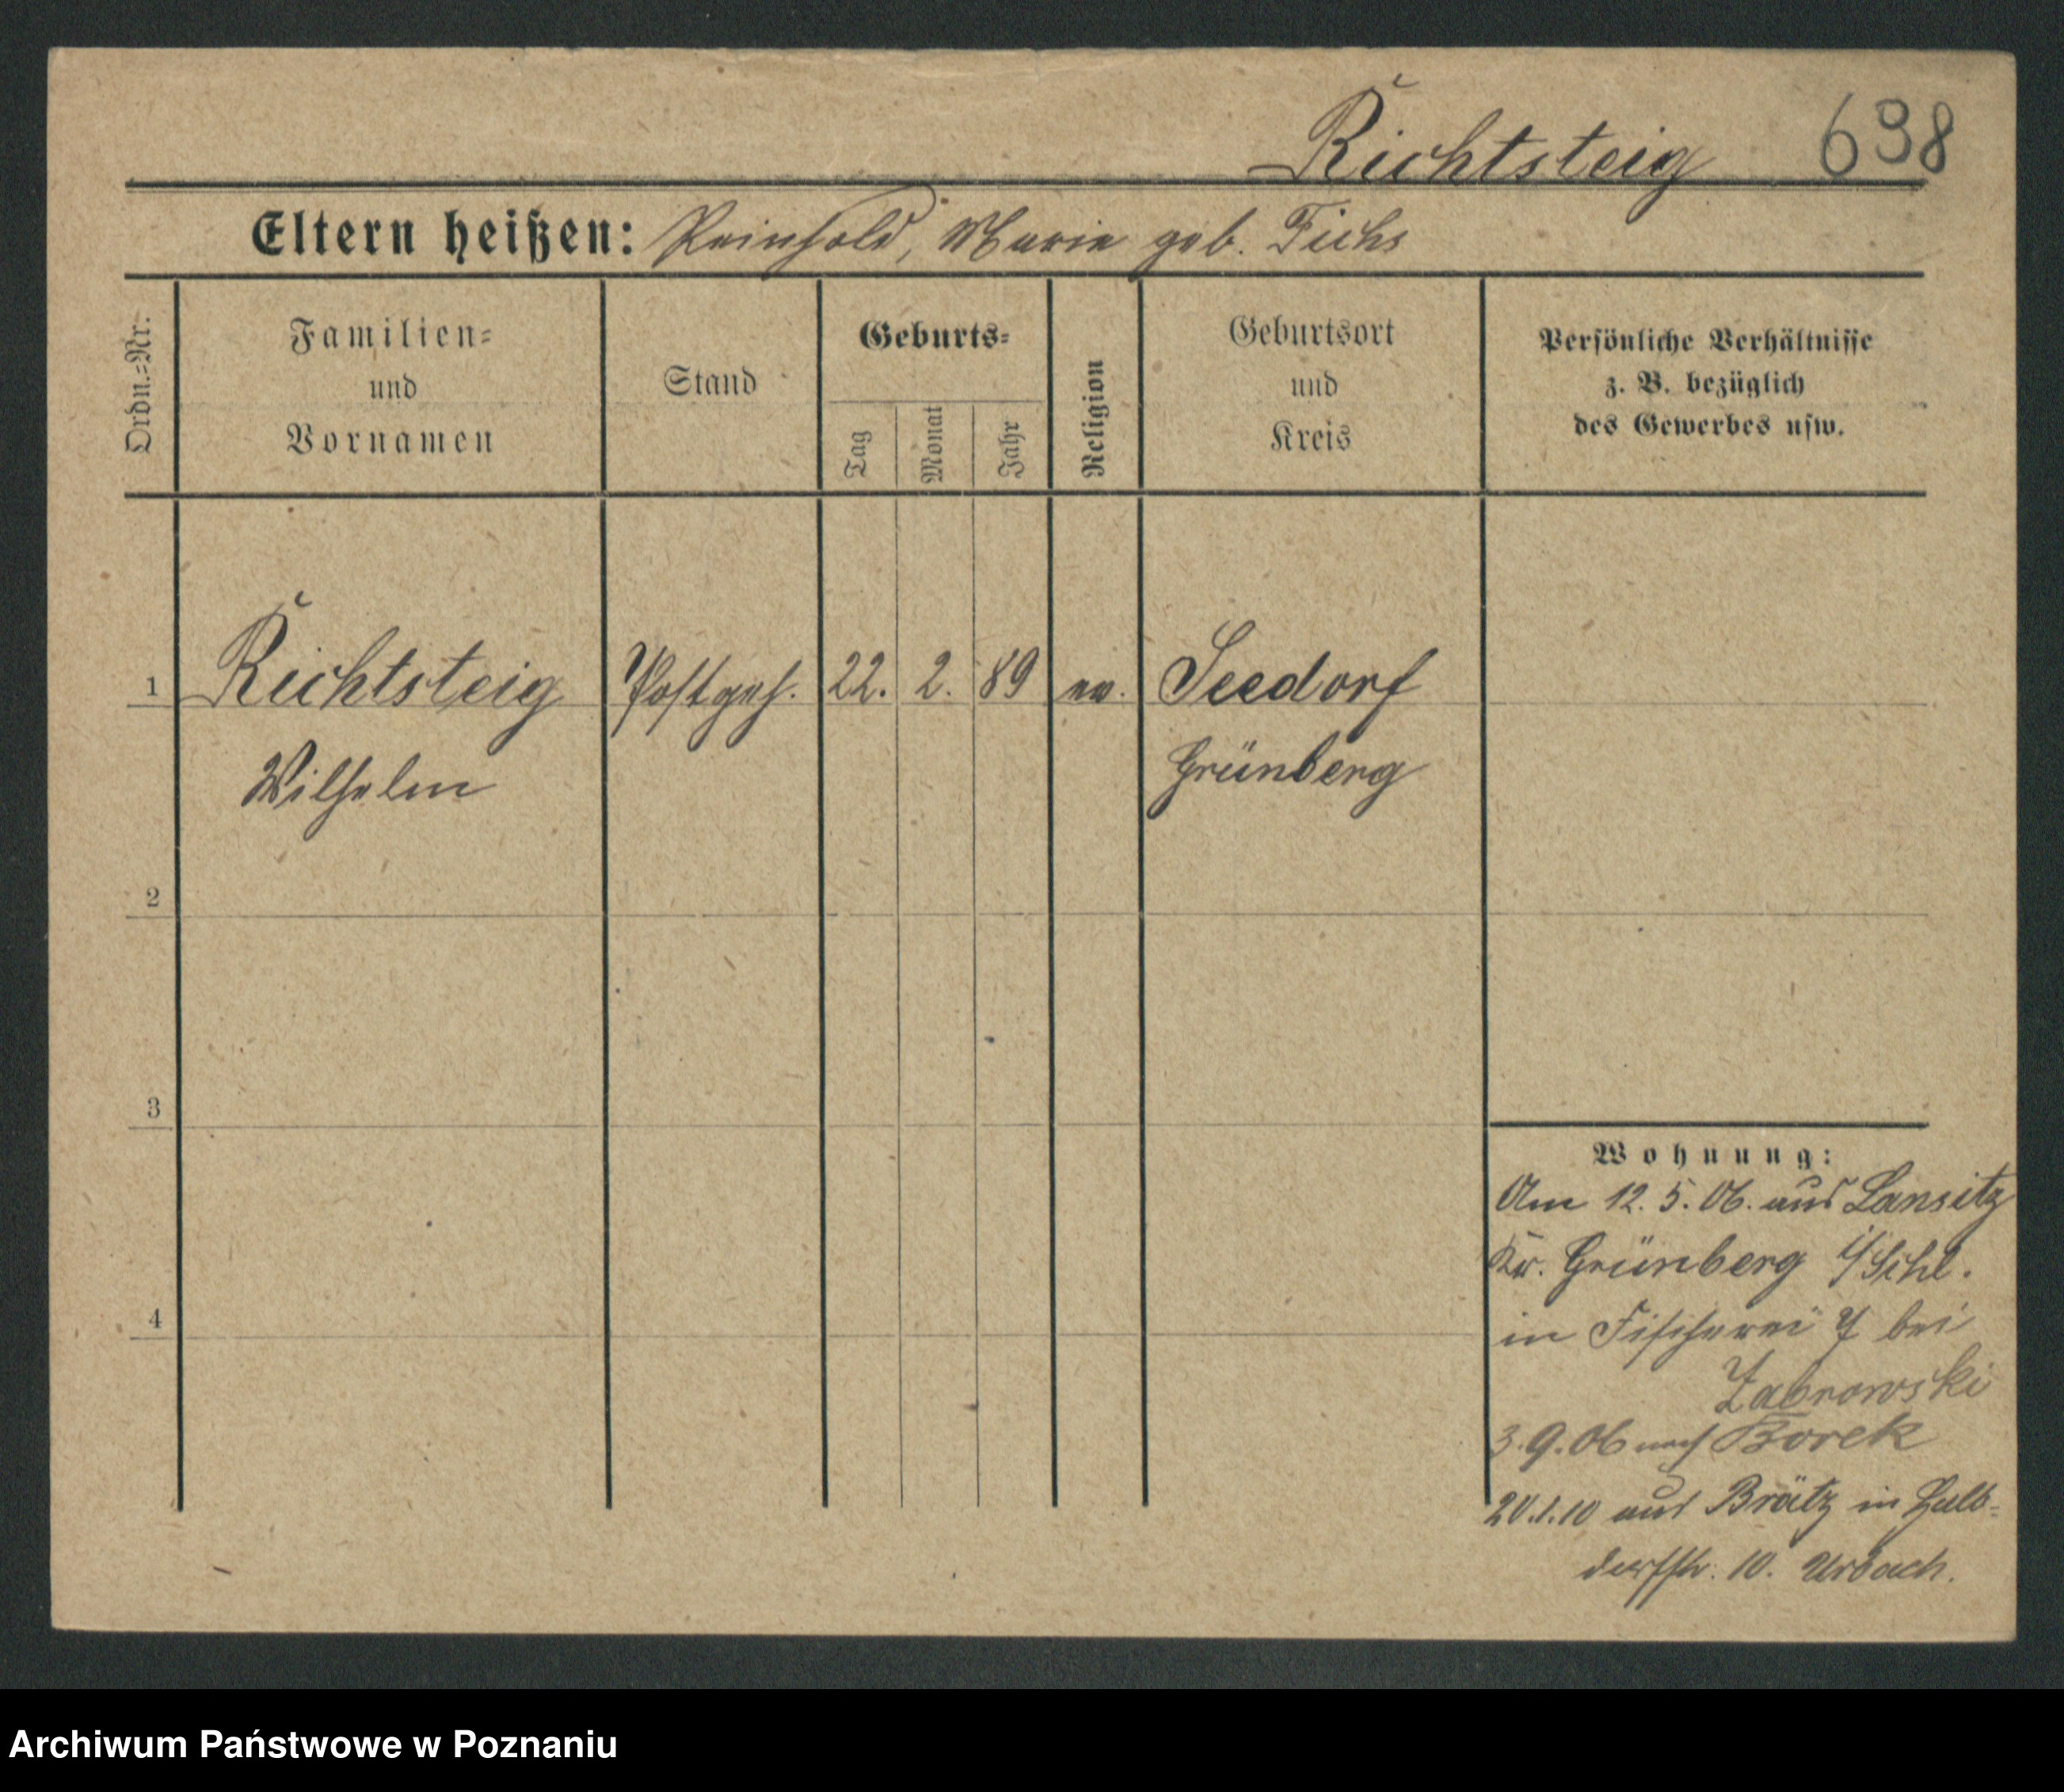 Richtsteig 698
Eltern heißen: Reinhold, Marie geb. Fichs
Ordn.=Nr.
Familien=
und
Vornamen
Stand
Geburts=
Tag
Monat
Jahr
Religion
Geburtsort
und
Kreis
Persönliche Verhältnisse
z. B. bezüglich
des Gewerbes usw.
1 Richtsteig Postgeh. 22. 2. 89 ev. Seedorf
Wilhelm Grünberg
2
3
4
Wohnung:
Am 12. 5. 06. aus Lansitz
Kr. Grünberg i/Schl.
in Fischerei 7 bei
Zabrowski
3.9.06 nach Borek
20.1.10 aus Brätz in Halb=
dorfstr. 10. Urbach.
Archiwum Państwowe w Poznaniu